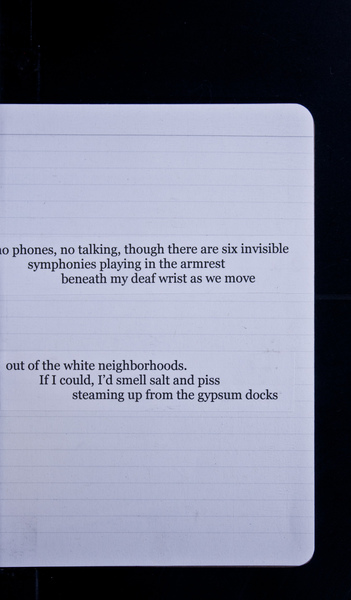 no phones, no talking, though there are six invisible
symphonies playing in the armrest
beneath my deaf wrist as we move
out of the white neighborhoods.
If I could, I’d smell salt and piss
steaming up from the gypsum docks